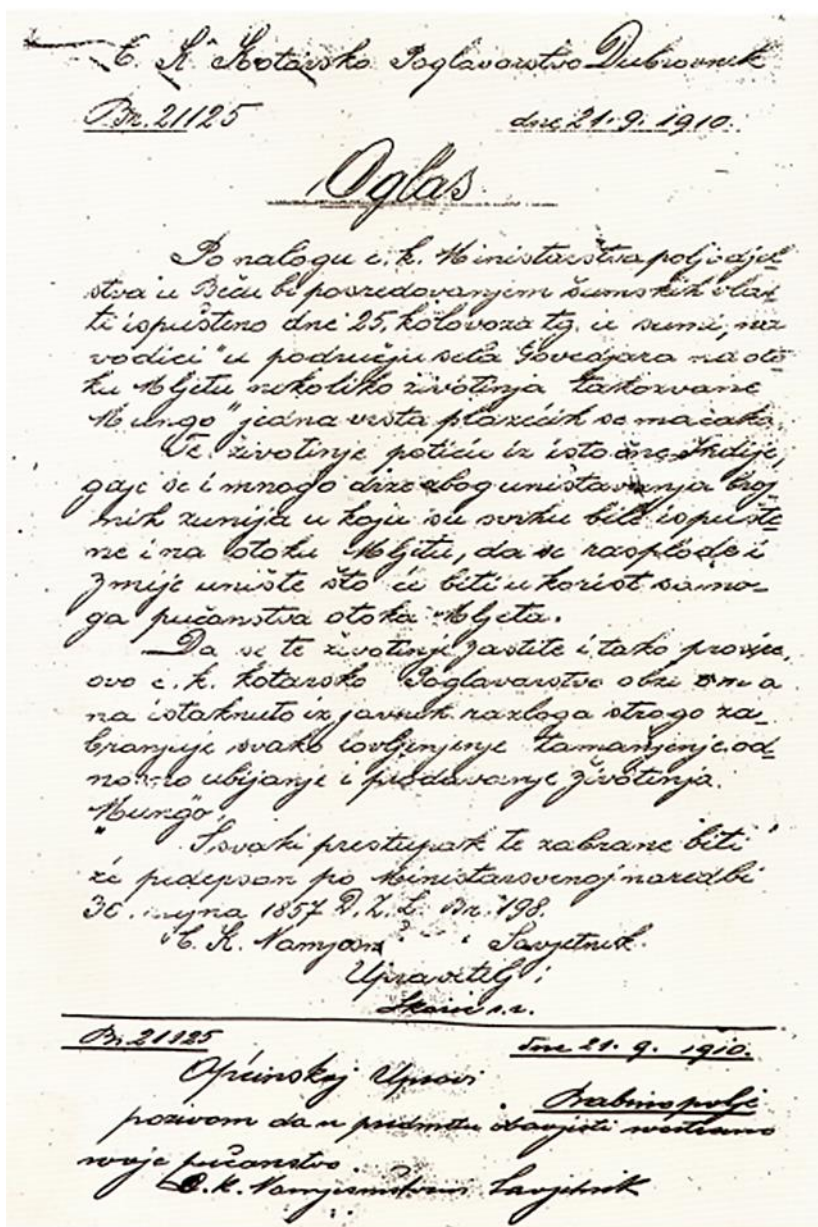 C. K. Kotarsko Poglavarstvo Dubrovnik
Br. 21125 dne 21. 9. 1910.
Oglas
Po nalogu c. k. Ministarstva poljodjel-
stva u Beču bi posredovanjem šumskih vlas-
ti ispušteno dne 25. kolovoza tg. u šumi „na
vodici" u području sela Govedjara na oto-
ku Mljetu nekoliko životinja takozvane
„Mungo" jedna vrsta plazećih se mačaka.
Te životinje potiču iz istočne Indije,
gaje se i mnogo drže zbog uništavanja broj-
nih zmija u koju su svrhu bile ispušte-
ne i na otoku Mljetu, da se rasplode i
zmije unište što će biti u korist samo-
ga pučanstva otoka Mljeta.
Da se te životinje zaštite i tako
ovo c. k. kotarsko Poglavarstvo obzirom a
na istaknuto iz javnih razloga strogo za-
branjuje svako lovljenje tamanjenje od-
nosno ubijanje i prodavanje životinja
„Mungo".
Svaki prestupak te zabrane biti
će pedepsan po Ministarsvenoj naredbi
30. rujna 1857 D. Z. L. Br. 198.
C. K. Savjetnik.
Upravitelj:
Br. 21125 dne 21. 9. 1910.
Općinskoj Upravi
Babinopolje
pozivom da u predmetu obavjesti
svoje pučanstvo.
C. K. Namjesništveni Savjetnik